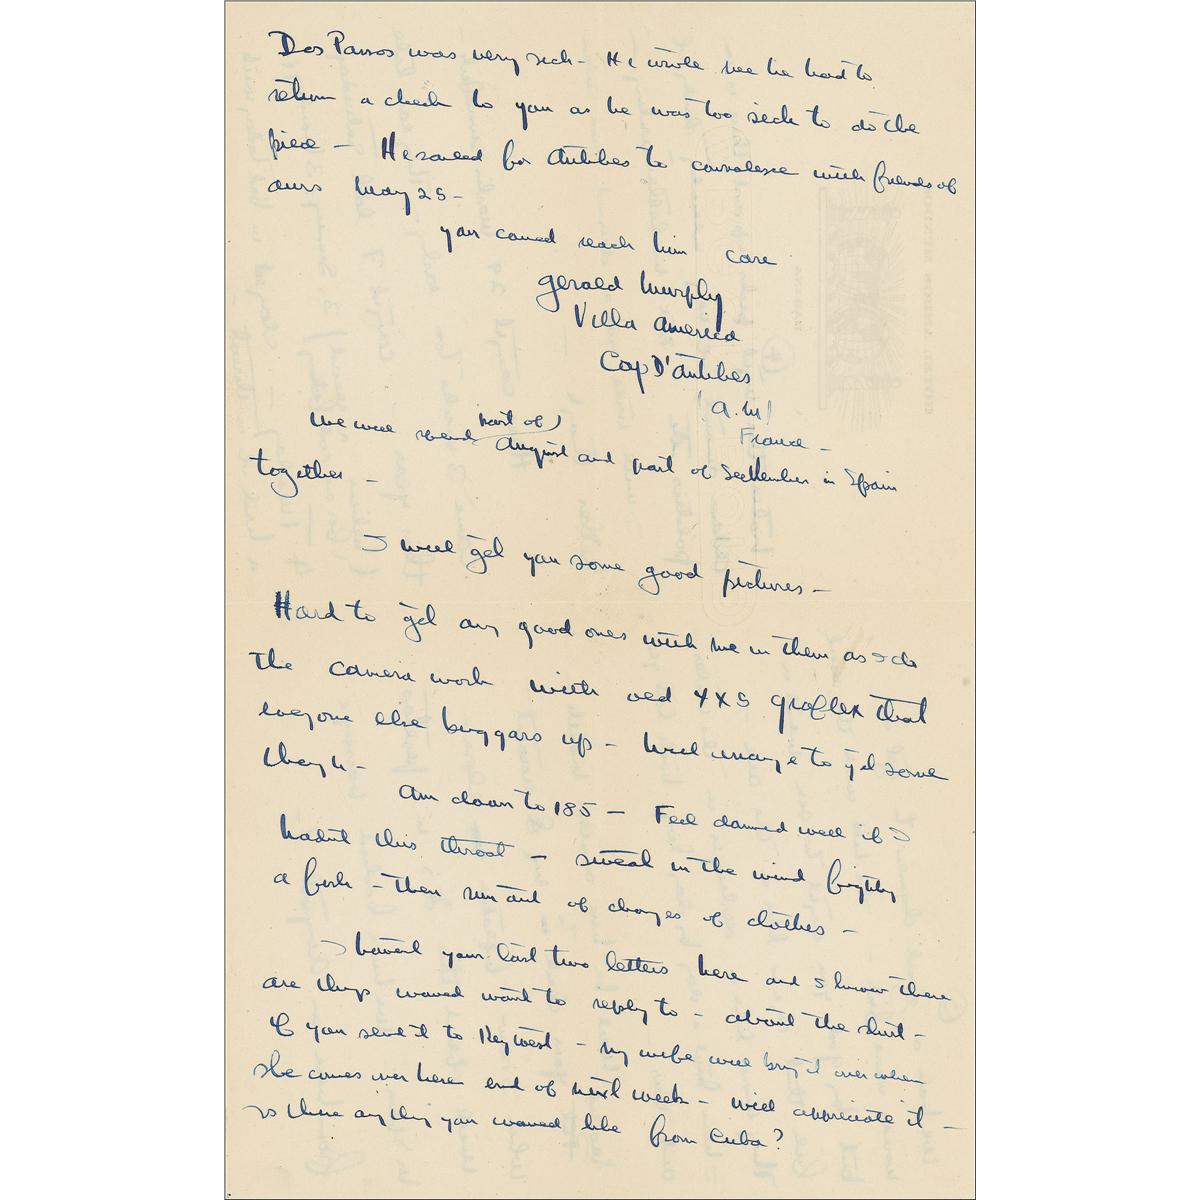 Dos Passos was very sick - He wrote me he had to
return a check to you as he was too sick to do the
piece - He sailed for Antibes to convalesce with friends of
ours May 25 -
you could reach him care
Gerald Murphy
Villa America
Cap D'Antibes
(A.M)
France -
We will spend part of August and part of September in Spain
together -
I will get you some good pictures -
Hard to get any good ones with me in them as I do
the camera work with old 4X5 graflex that
everyone else buggars up - Will manage to get some
though -
Am down to 185 - Feel damned well if I
hadnt this throat - sweat in the wind fighting
a fish - then run out of changes of clothes -
I havent your last two letters here and I know there
are things would want to reply to - about the shirt -
If you sent it to Key West - my wife will bring it over when
she comes over here end of next week - will appreciate it -
Is there anything you would like from Cuba?